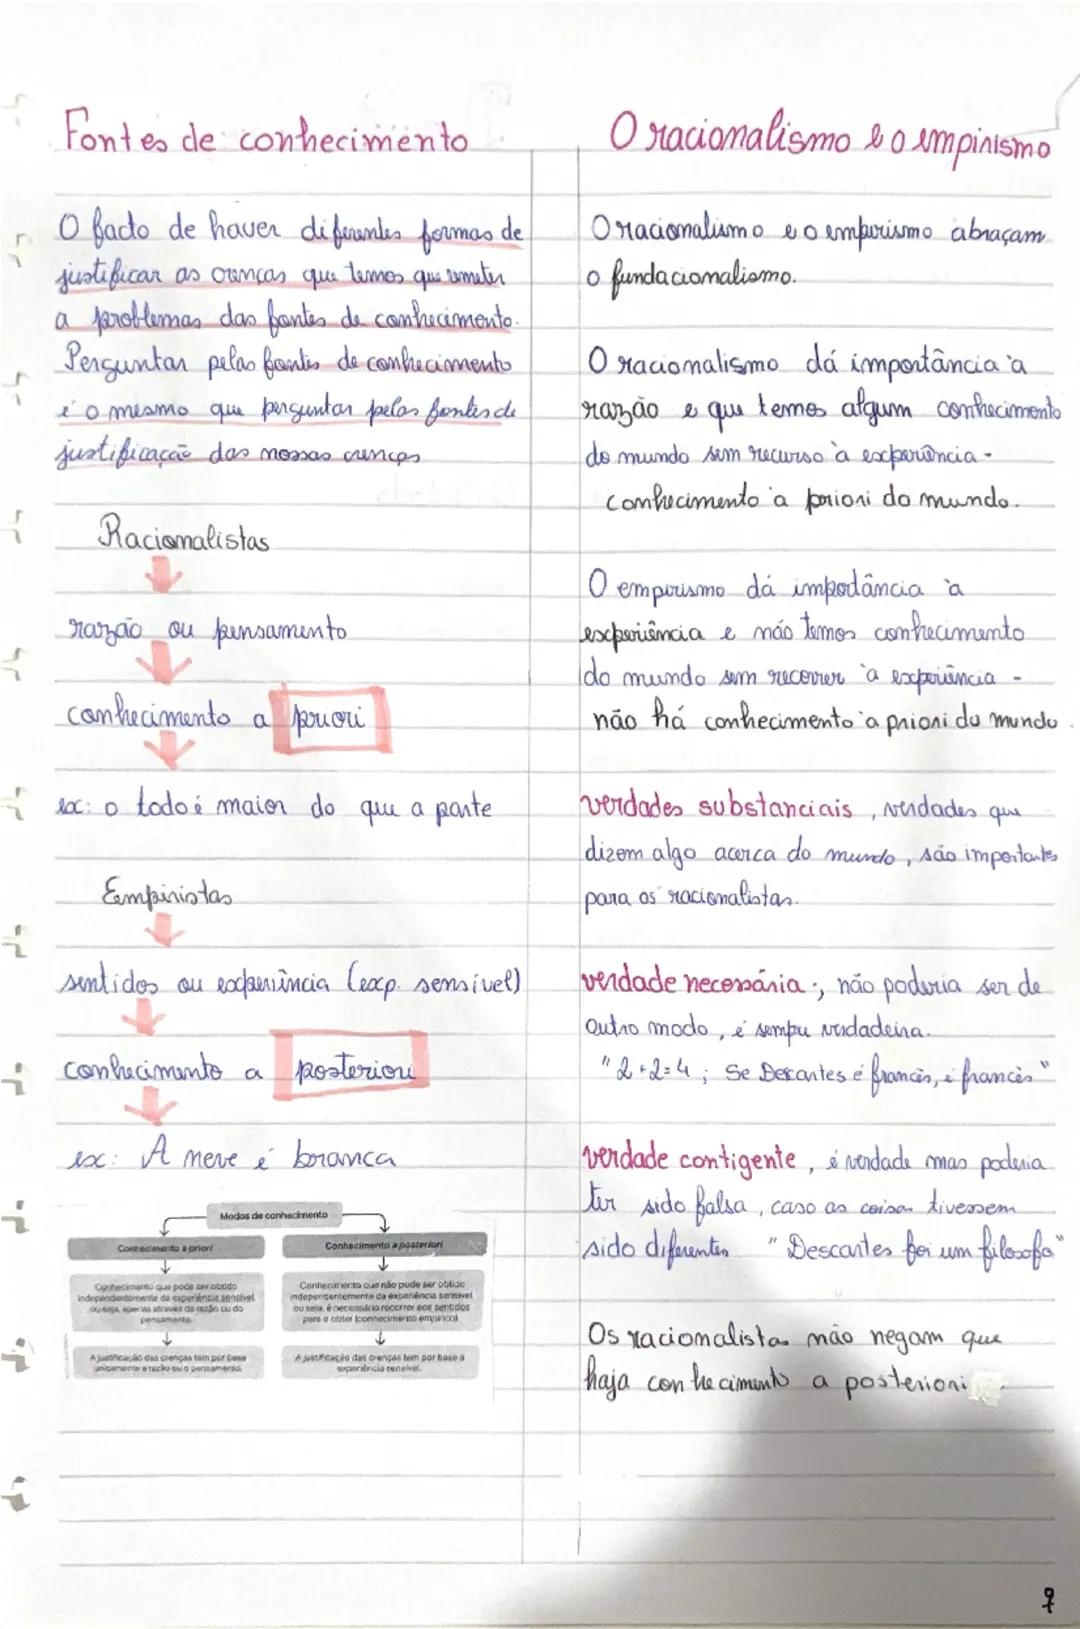 Fontes de conhecimento
O facto de haver diferentes formas de
justificar as crenças que temos que remeter
a problemas das fontes de conhecimento.
Perguntar pelas fontes de conhecimento
é o mesmo que perguntar pelas fontes de
justificação das nossas crenças
Racionalistas
razão ou pensamento
conhecimento a priori
ex: o todo é maior do que a parte
Empiristas
sentidos ou experiência (exp. sensível)
conhecimento a posteriori
ex: A neve é branca
Modos de conhecimento
Conhecimento a priori
Conhecimento que pode ser obtido
independentemente da experiência sensível
ou seja, apenas através da razão ou do
pensamento.
A justificação das crenças tem por base
unicamente a razão ou o pensamento.
Conhecimento a posteriori
Conhecimento que não pode ser obtido
independentemente da experiência sensível
ou seja, é necessário recorrer aos sentidos
para o obter (conhecimento empírico)
A justificação das crenças tem por base a
experiência sensível.
O racionalismo e o empirismo
O racionalismo e o empirismo abraçam
o fundacionalismo.
O racionalismo dá importância à
razão e que temos algum conhecimento
do mundo sem recurso à experiência -
conhecimento à priori do mundo.
O empirismo dá importância à
experiência e não temos conhecimento
do mundo sem recorrer à experiência -
não há conhecimento à priori do mundo.
verdades substanciais, verdades que
dizem algo acerca do mundo, são importantes
para os racionalistas.
verdade necessária:, não poderia ser de
outro modo, é sempre verdadeira.
"2+2=4; Se Descartes é francês, é francês"
verdade contigente, é verdade mas poderia
ter sido falsa, caso as coisas tivessem
sido diferentes "Descartes foi um filósofo"
Os racionalistas não negam que
haja conhecimento a posteriori
7